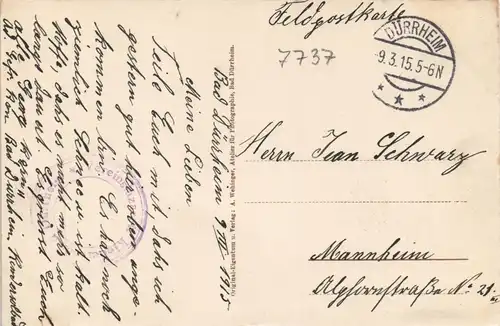 Feldpostkarte
7737
DÜRRHEIM
9.3.15.5-6N
Bad Dürrheim 9/III 1915
Meine Lieben
Teile Euch mit dahs ich
gestern gut hier oben ange-
kommen bin. Es hat noch
ziemlich Schnee u. ist kalt.
Hoffe, dahs es nicht mehr so
lang dauert. Es grüsst Euch
Bad Dürrheim,
Original-Eigentum u. Verlag: A. Wehinger, Atelier für Photographie, Bad Dürrheim.
Herrn Jean Schwarz
Mannheim
Alphornstraße No 29